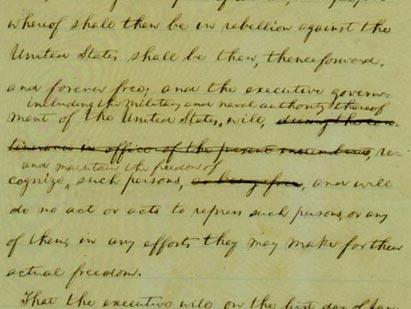 whereof shall then be in rebellion against the
United States shall be then, thenceforward,
and forever free; and the executive govern-
including the military and naval authority thereof
ment of the United States, will, during the con-
tinuance in office of the present incumbents, re-
and maintain the freedom of
cognize, such persons, as being free, and will
do no act or acts to repress such persons, or any
of them, in any efforts they may make for their
actual freedom.
That the executive will, on the first day of Jan-